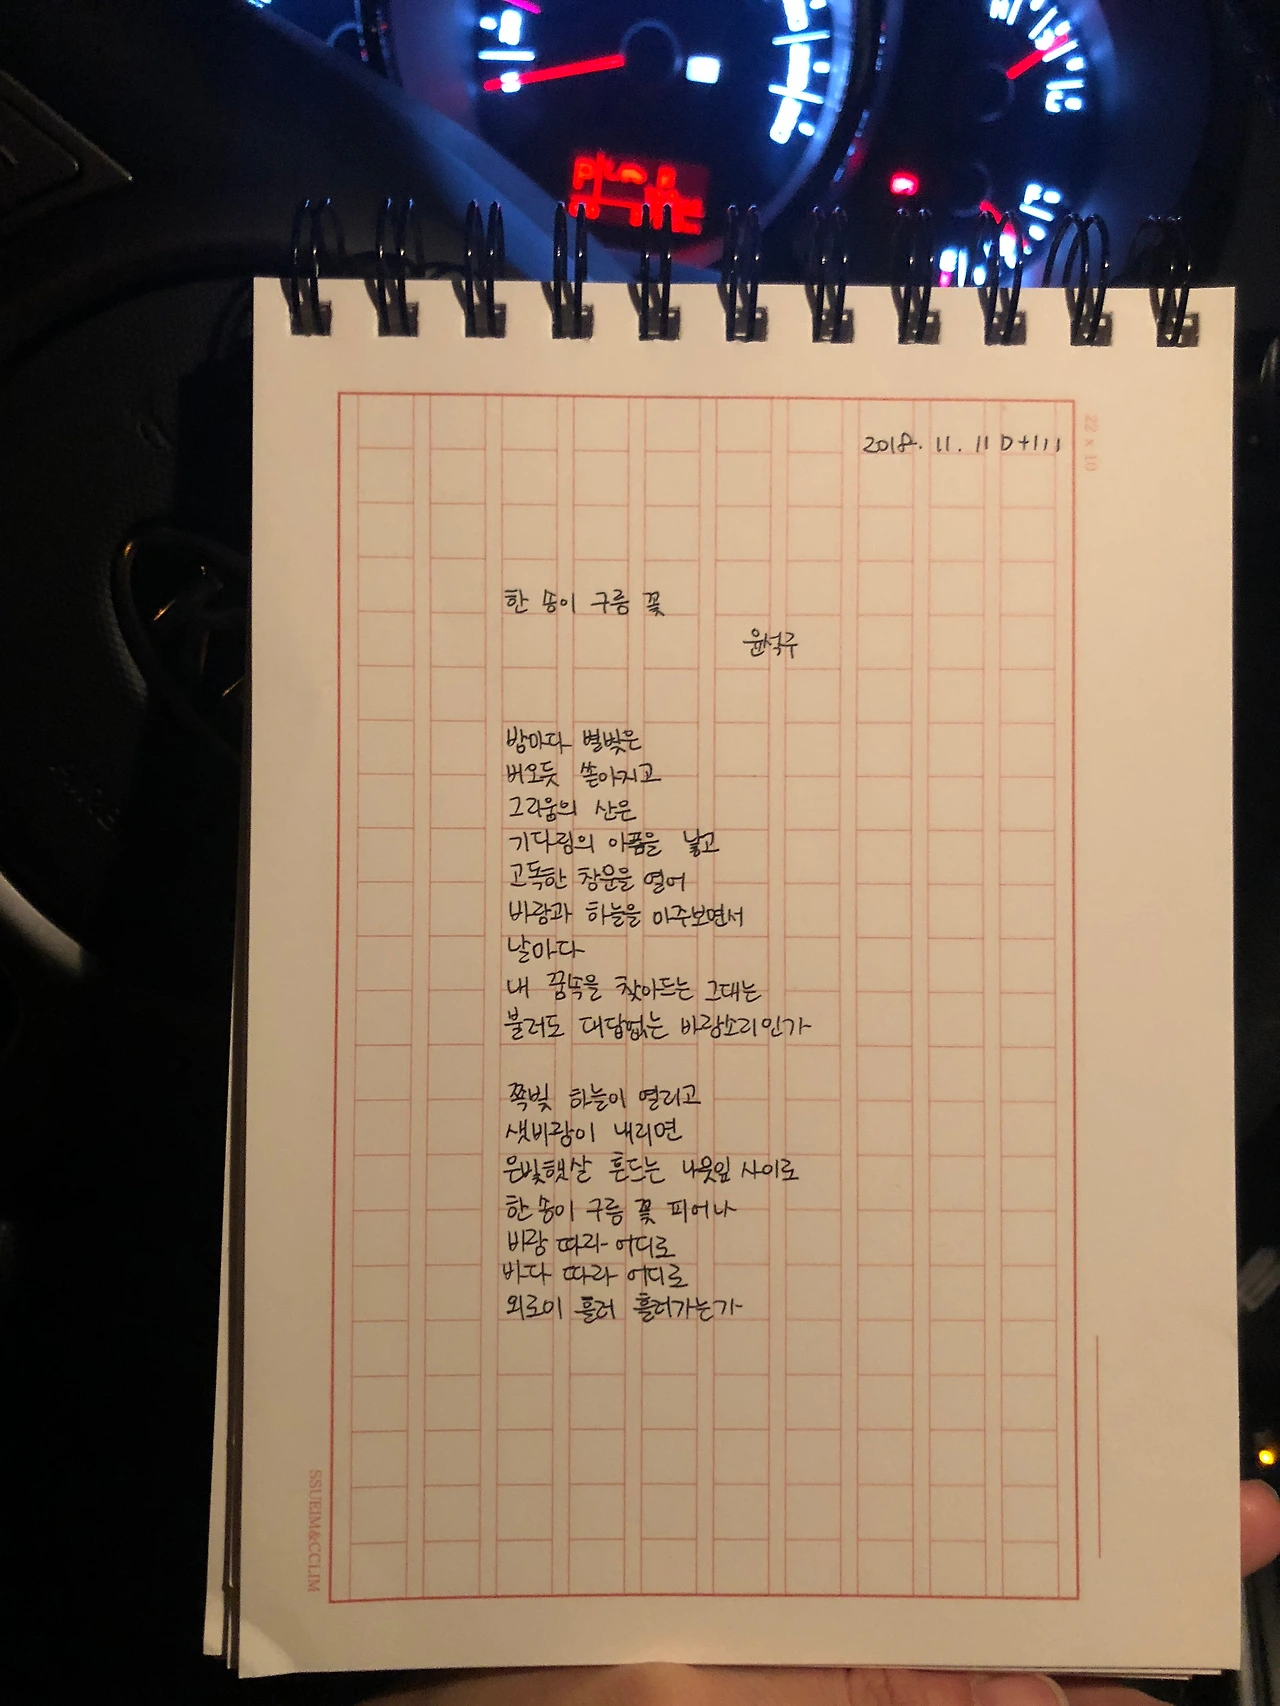 22 x 10
2018. 11. 11 D+111
한 송이 구름 꽃
윤석주
밤마다 별빛은
버오듯 쏟아지고
그리움의 산은
기다림의 아픔을 낳고
고독한 창문을 열어
바람과 하늘을 마주보면서
날마다
내 꿈속을 찾아드는 그대는
불러도 대답없는 바람소리인가
쪽빛 하늘이 열리고
샛바람이 내리면
은빛햇살 흔드는 나뭇잎 사이로
한 송이 구름 꽃 피어나
바람 따라 어디로
바다 따라 어디로
외로이 흘러 흘러가는가
SSUEIM&CCLIM